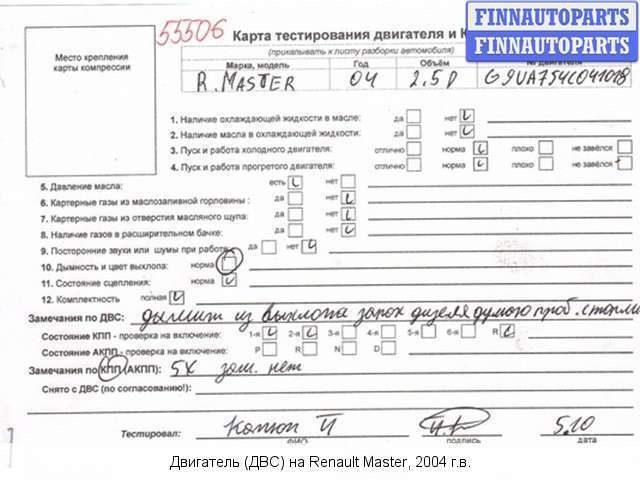 FINNAUTOPARTS
FINNAUTOPARTS
55506
Карта тестирования двигателя и К
(прикалывать к листу разборки автомобиля)
Место крепления
карты компрессии
Марка, модель Год Объём № двигателя
R. MASTER 04 2.5D G9UA754C041028
1. Наличие охлаждающей жидкости в масле: да нет
2. Наличие масла в охлаждающей жидкости: да нет
3. Пуск и работа холодного двигателя: отлично норма плохо не завёлся
4. Пуск и работа прогретого двигателя: отлично норма плохо не завёлся
5. Давление масла: есть нет
6. Картерные газы из маслозаливной горловины : да нет
7. Картерные газы из отверстия масляного щупа: да нет
8. Наличие газов в расширительном бачке: да нет
9. Посторонние звуки или шумы при работе: да нет
10. Дымность и цвет выхлопа: норма
11. Состояние сцепления: норма
12. Комплектность полная
Замечания по ДВС: дымит из выхлопа запах дизеля
Состояние КПП - проверка на включение: 1-я 2-я 3-я 4-я 5-я 6-я R
Состояние АКПП - проверка на включение: P R N D
Замечания по КПП (АКПП): 5X зам. нет
Снято с ДВС (по согласованию!):
Тестировал: 5.10
ФИО подпись дата
Двигатель (ДВС) на Renault Master, 2004 г.в.